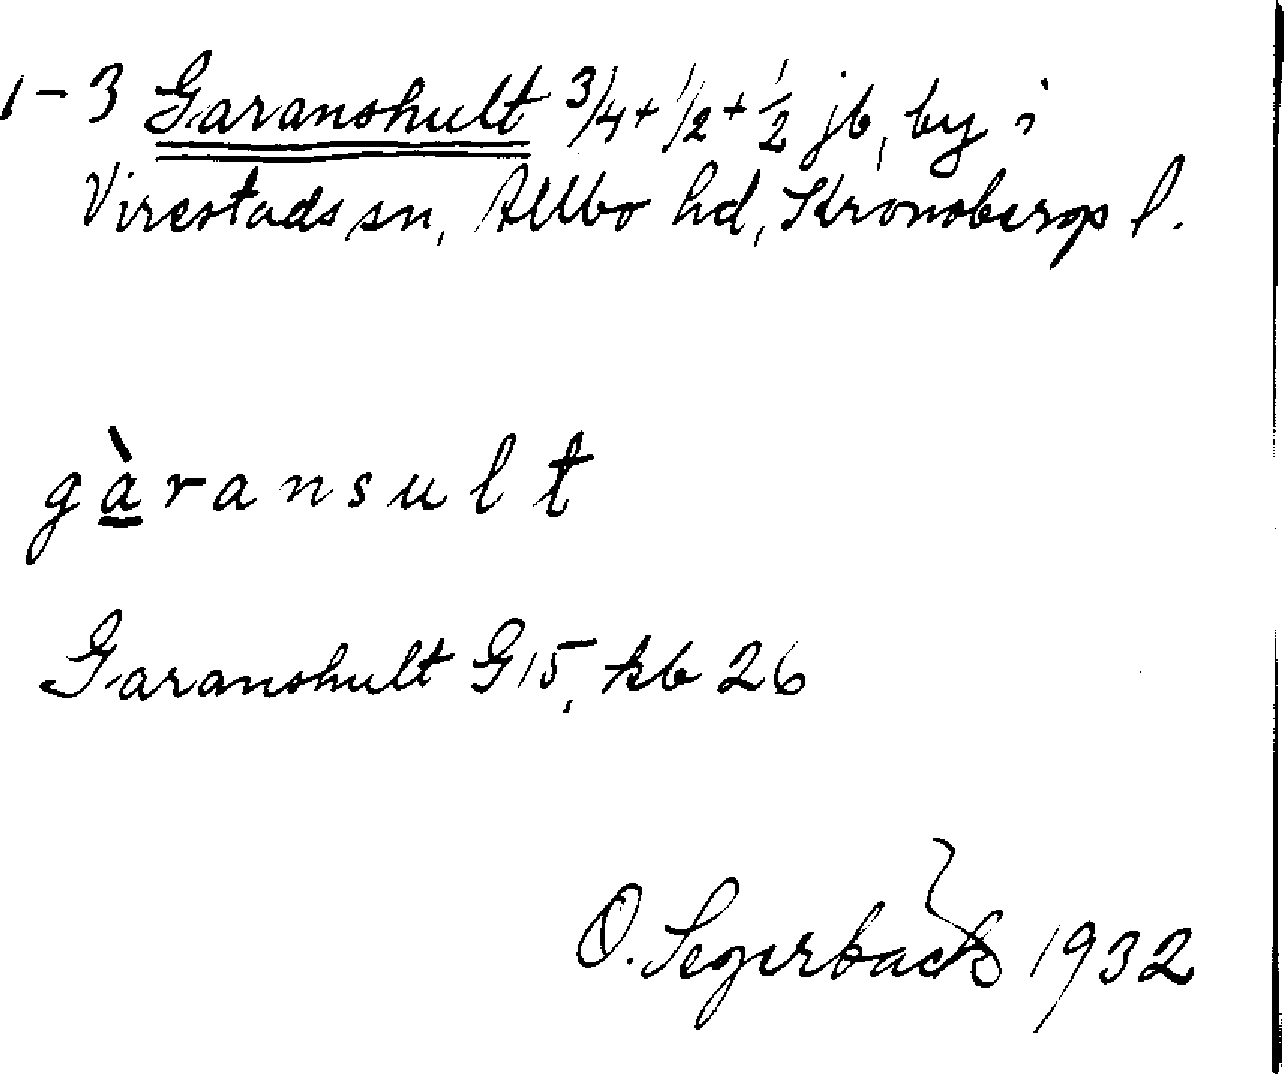 1-3 Garanshult 3/4+1/2+1/2 jb, by i
Virestads sn, Allbo hd, Kronobergs l.
gàransult
Garanshult G15, kb 26
O. Segerback 1932